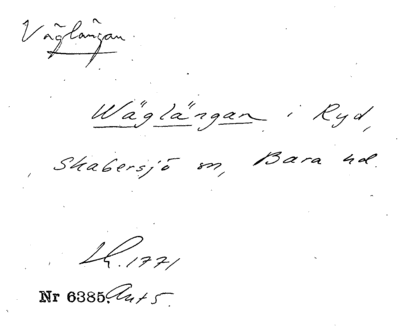 Väglängan.
Wäglängan i Ryd,
Skabersjö sn, Bara hd.
Lk. 1771
Nr 6385. Akt 5.